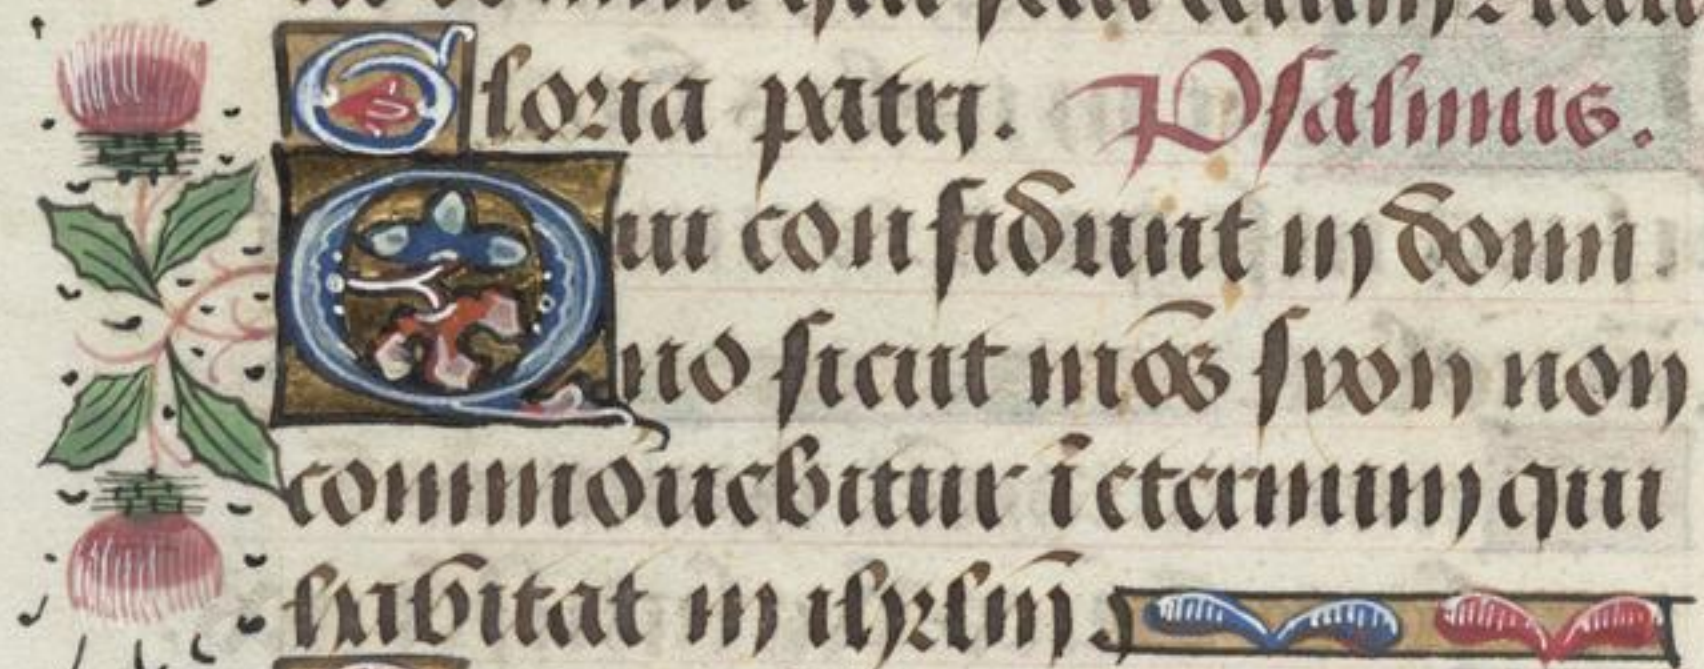 Gloria patri. Psalmus.
Qui confidunt in domi
no sicut mōs syon non
commouebitur ī eternum qui
habitat in ihrlm̄.